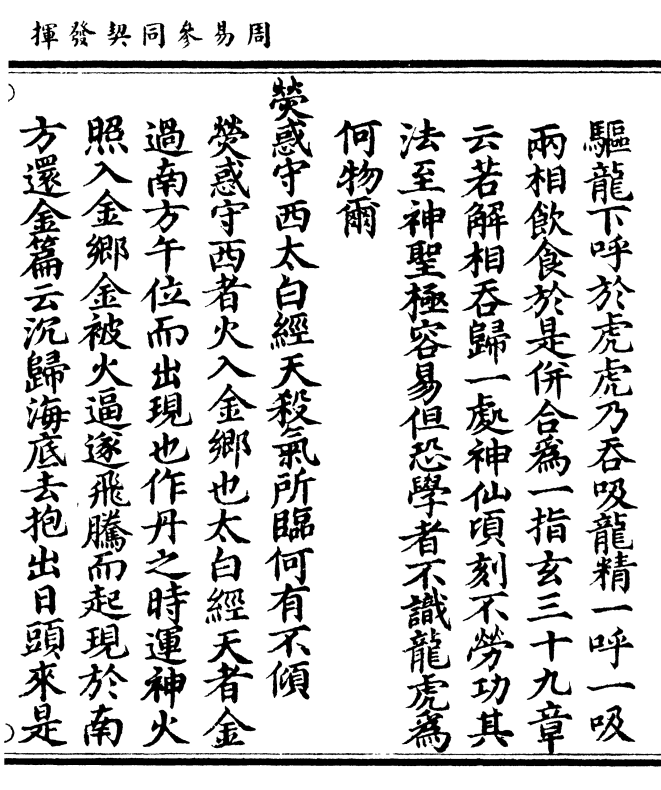 周易參同契發揮
驅龍下呼於虎虎乃吞吸龍精一呼一吸
兩相飲食於是併合爲一指玄三十九章
云若解相吞歸一處神仙頃刻不勞功其
法至神聖極容易但恐學者不識龍虎爲
何物爾
熒惑守西太白經天殺氣所臨何有不傾
熒惑守西者火入金鄉也太白經天者金
過南方午位而出現也作丹之時運神火
照入金鄉金被火逼遂飛騰而起現於南
方還金篇云沉歸海底去抱出日頭來是